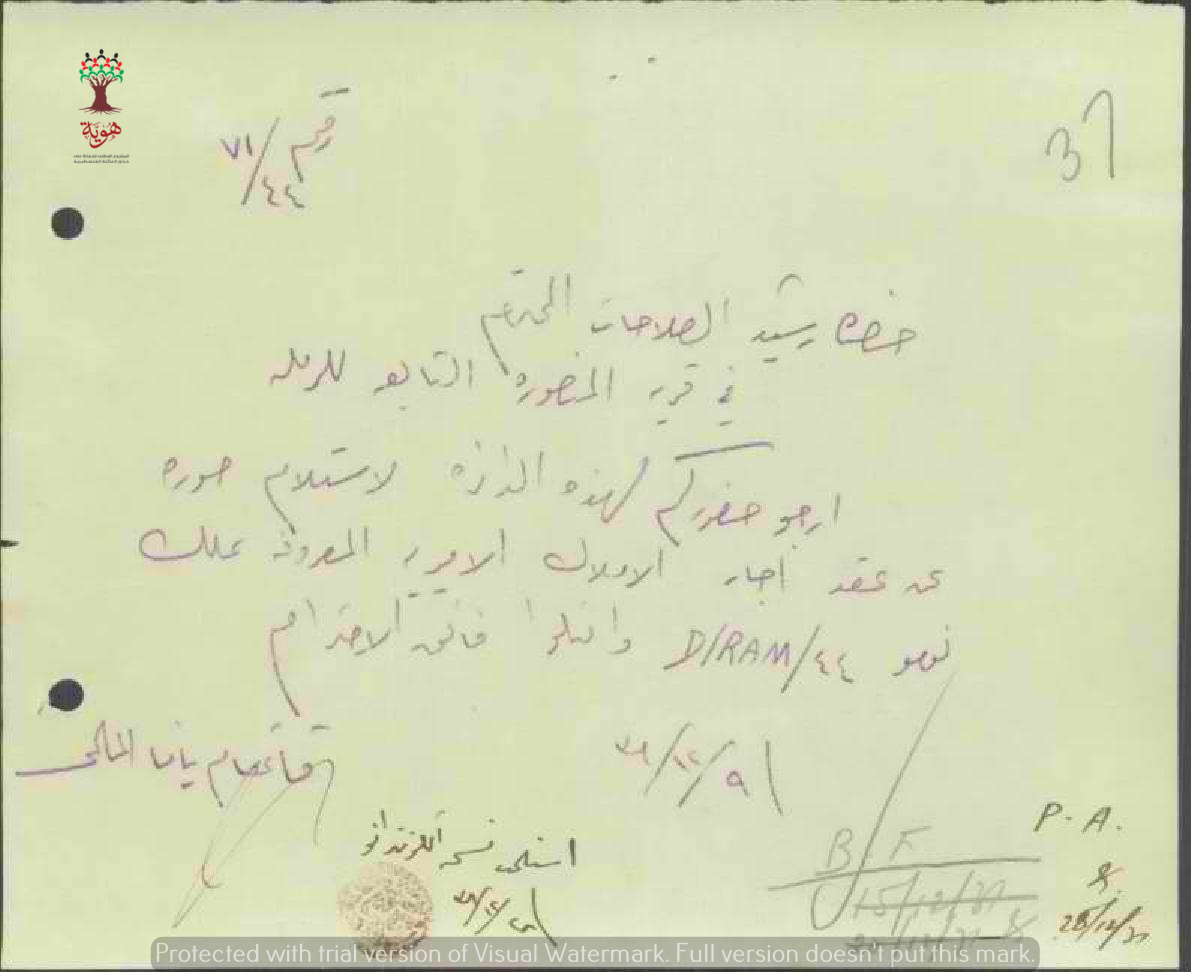 هوية
37
رقم ٧١/٤٤
حضرة رشيد الصلاحات المحترم
في قرية المنصورة التابعه للرمله
ارجو حضوركم لهذه الدائرة لاستلام صورة
عن عقد اجار الاملاك الاميرية المعروفة بملك
نومرو D/RAM/٤٤ واقبلوا فائق الاحترام
٩/١٢/٣١
قائمقام يافا
استلمت نسخه
P.A.
B.F
15/12/31
28/12/31
Protected with trial version of Visual Watermark. Full version doesn't put this mark.